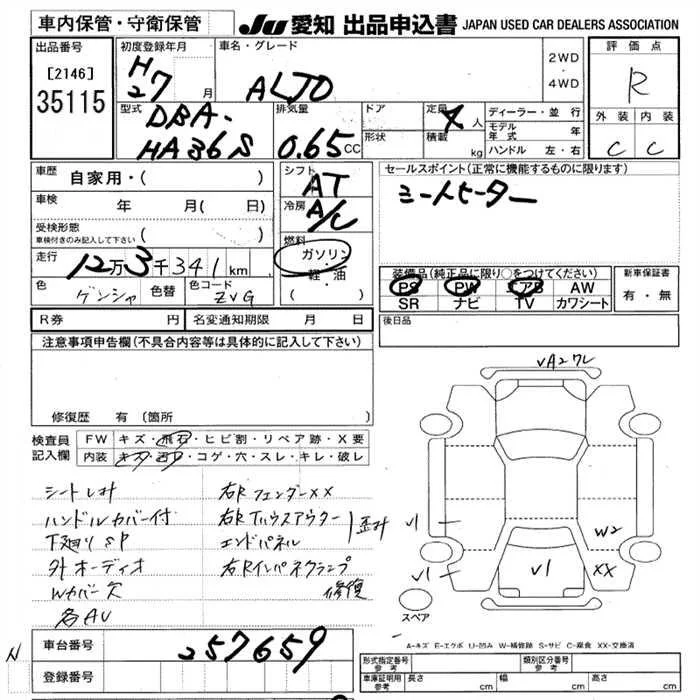 車内保管・守衛保管
JU 愛知 出品申込書 JAPAN USED CAR DEALERS ASSOCIATION
出品番号
[2146]
35115
初度登録年月
H27 月
車名・グレード
ALTO
2WD
・
4WD
評価点
R
型式
DBA-
HA36S
排気量
0.65 CC
ドア
形状
定員 4 人
積載 kg
ディーラー・並行
モデル年式 年
ハンドル 左・右
外装 内装
C C
車歴 自家用・( )
車検 年 月( 日)
受検形態
車検付きのみ記入して下さい ( )
走行 12万3千341km
色 ゲンシャ 色替 色コード ZVG
シフト
AT
冷房
A/C
燃料
ガソリン
・
軽・油
( )
セールスポイント(正常に機能するものに限ります)
シートヒーター
装備品(純正品に限り○をつけてください)
PS PW エアB AW
SR ナビ TV カワシート
新車保証書
有・無
R券 円 名変通知期限 月 日
後日品
注意事項申告欄(不具合内容等は具体的に記入して下さい)
修復歴 有(箇所 )
検査員
記入欄
FW キズ・飛石・ヒビ割・リペア跡・X要
内装 キズ・凹ワ・コゲ・穴・スレ・キレ・破レ
ハンドルカバー付
下廻りSP
外オーディオ
Wカバー欠
各AU
右Rフェンダーxx
右RTハウスアウター
エンドパネル
歪み
右Rインパネクランプ
修復
VA2ワレ
V1
W2
V1
V1
XX
スペア
A-キズ E-エクボ U-凹み W-補修跡 S-サビ C-腐食 XX-交換済
N
車台番号 257659
登録番号
形式指定番号
参考
類別区分番号
参考
車庫証明用
参考
長さ cm 幅 cm 高さ cm